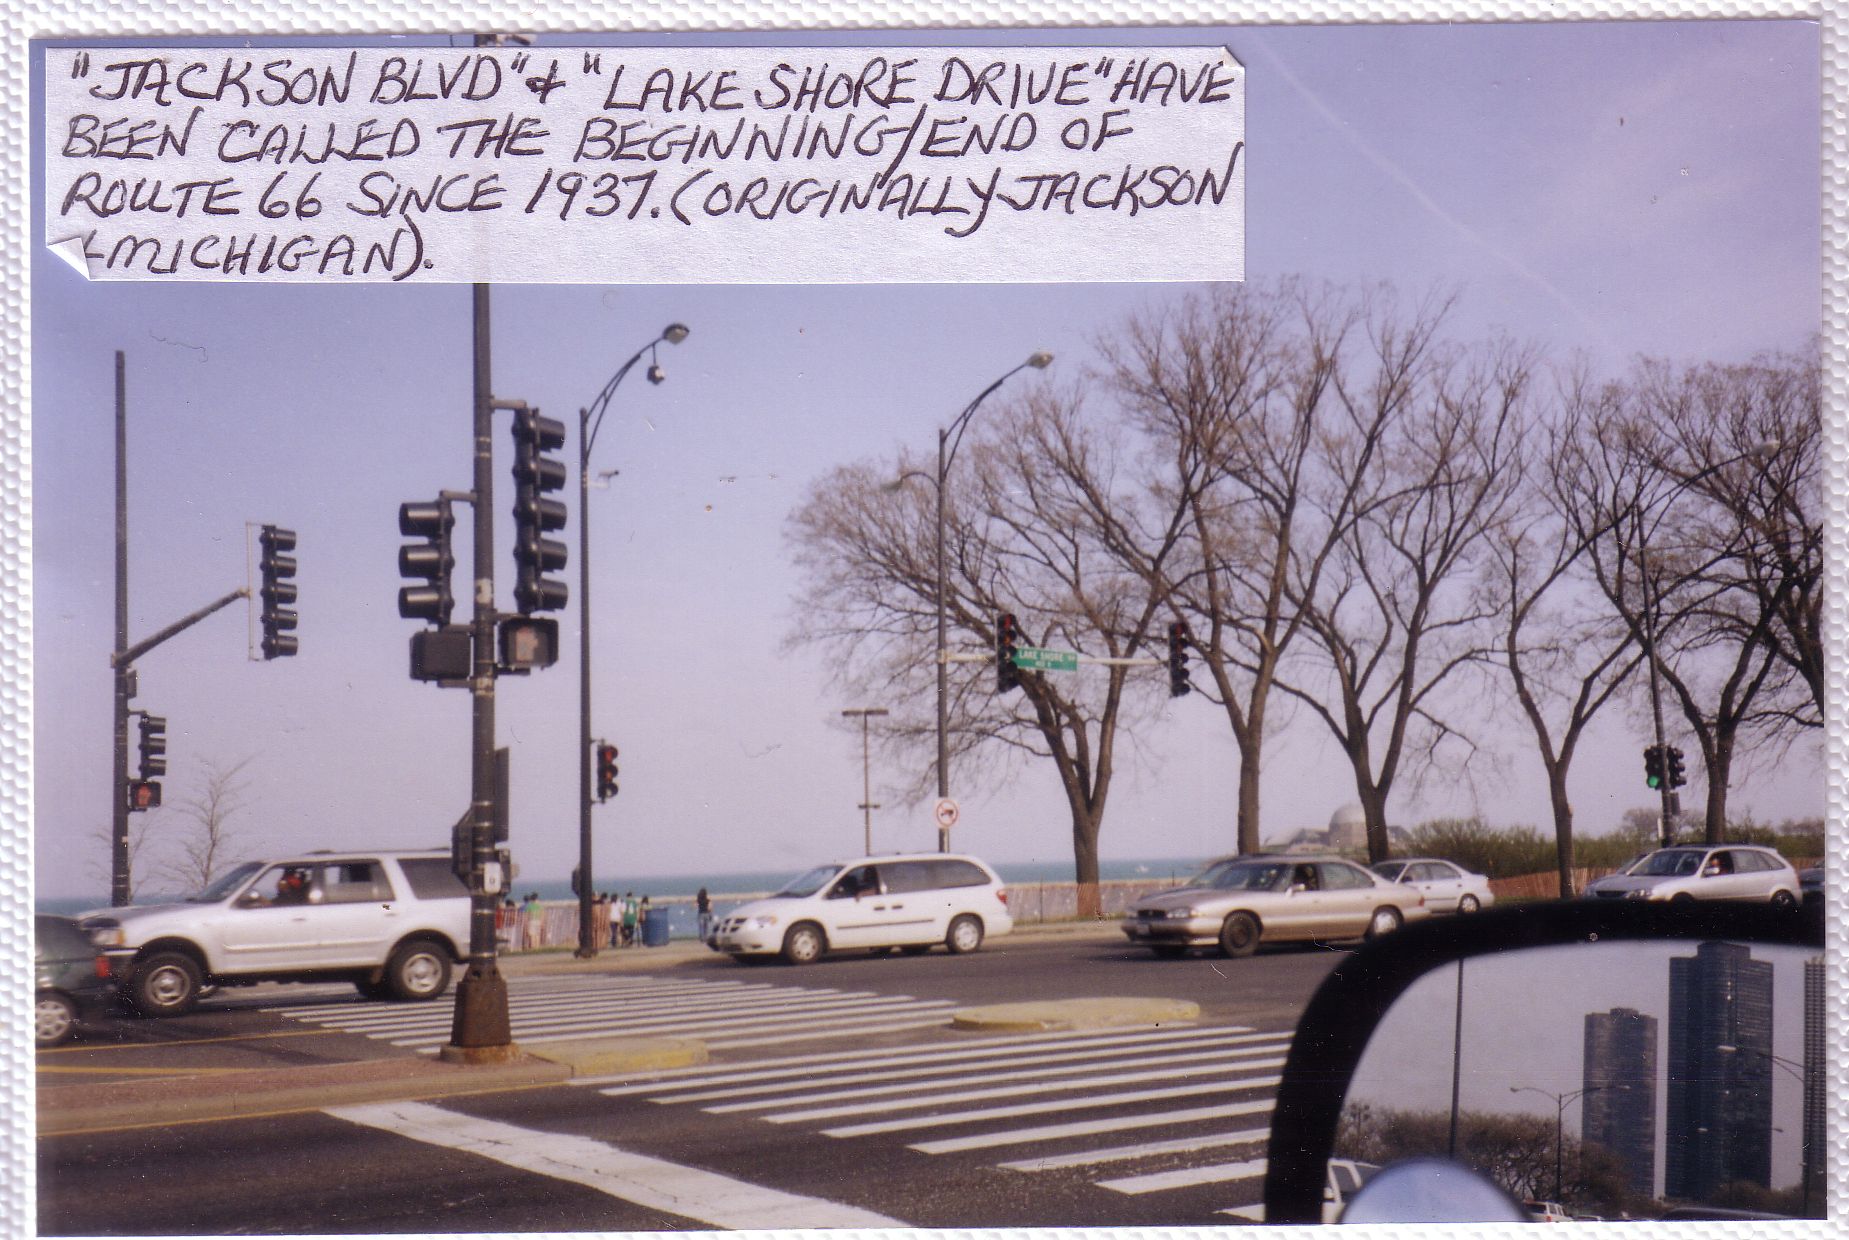 "JACKSON BLVD" & "LAKE SHORE DRIVE" HAVE
BEEN CALLED THE BEGINNING/END OF
ROUTE 66 SINCE 1937. (ORIGINALLY-JACKSON
+MICHIGAN).
LAKE SHORE DR